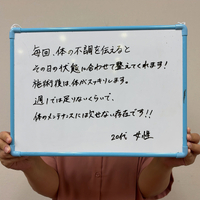 毎回、体の不調を伝えると
その日の状態に合わせて整えてくれます!
施術後は、体がスッキリします。
週1では足りないくらいで、
体のメンテナンスには欠せない存在です!!
20代 女性